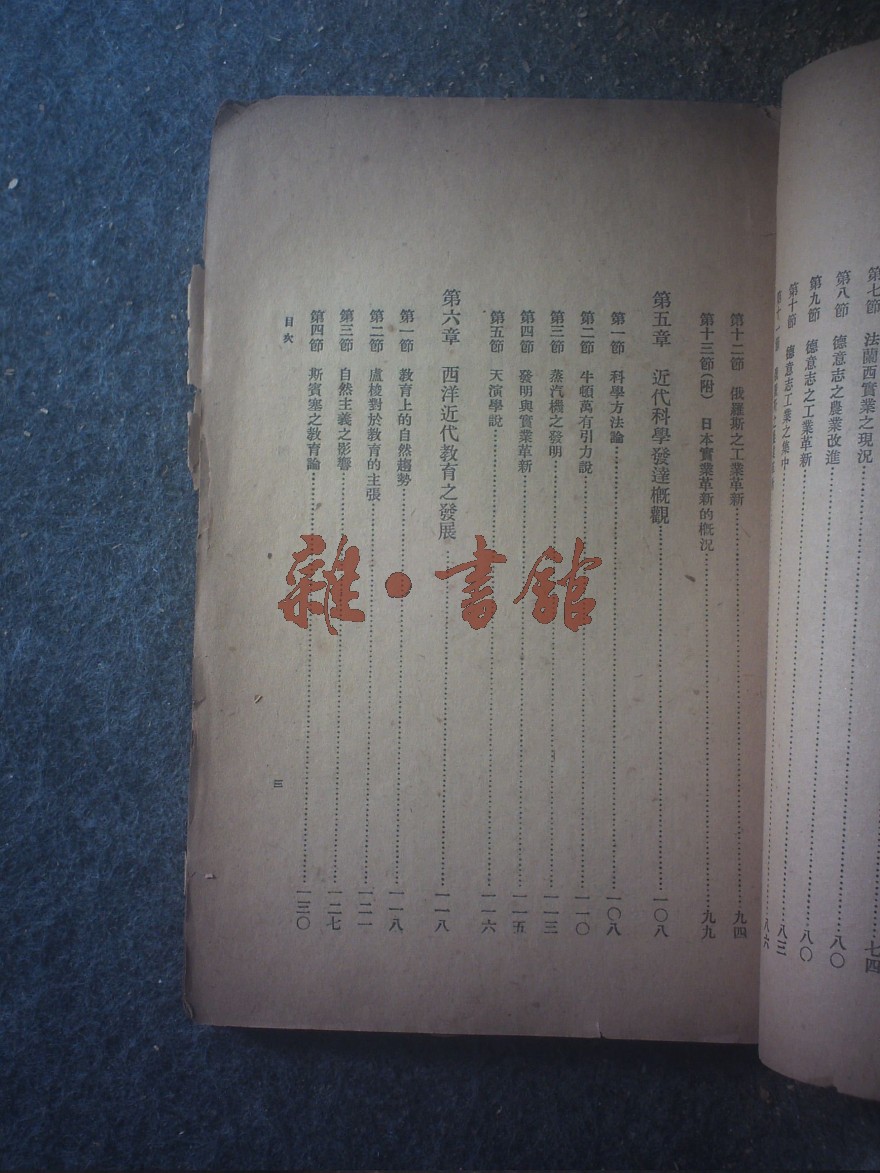 第七節 法蘭西實業之現況……七四
第八節 德意志之農業改進……八〇
第九節 德意志之工業革新……八〇
第十節 德意志工業之集中……八三
第十一節……八六
第十二節 俄羅斯之工業革新……九四
第十三節(附) 日本實業革新的概況……九九
第五章 近代科學發達概觀……一〇八
第一節 科學方法論……一〇八
第二節 牛頓萬有引力說……一一〇
第三節 蒸汽機之發明……一一三
第四節 發明與實業革新……一一五
第五節 天演學說……一一六
第六章 西洋近代教育之發展……一一八
第一節 教育上的自然趨勢……一一八
第二節 盧梭對於教育的主張……一二一
第三節 自然主義之影響……一二七
第四節 斯賓塞之教育論……一三〇
目次
三
雜·書館